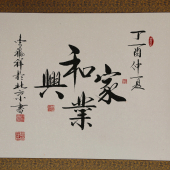 丁酉仲夏
家和業興
祥於北京書